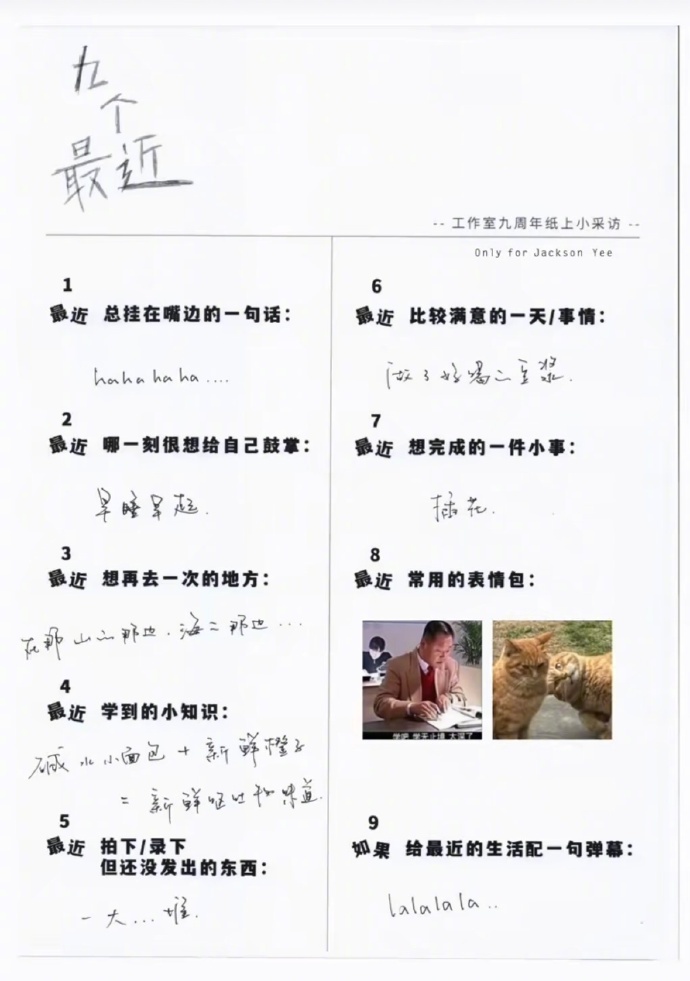 九
个
最近
-- 工作室九周年纸上小采访 --
Only for Jackson Yee
1
最近 总挂在嘴边的一句话：
hahahaha....
2
最近 哪一刻很想给自己鼓掌：
早睡早起.
3
最近 想再去一次的地方：
在那山的那边.海的那边...
4
最近 学到的小知识：
碱水小面包 + 新鲜橙子
= 新鲜呕吐物味道.
5
最近 拍下/录下
但还没发出的东西：
一大...堆.
6
最近 比较满意的一天/事情：
做了好喝的豆浆.
7
最近 想完成的一件小事：
插花.
8
最近 常用的表情包：
学吧 学无止境 太深了
9
如果 给最近的生活配一句弹幕：
lalalala..